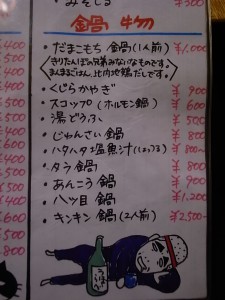 みそしる ¥300
鍋物
・だまこもち鍋(1人前) ¥1,000
きりたんぽの兄弟みたいなものです。
まんまるごはん、比内地鶏だしです。
・くじらかやき ¥900
・スコップ(ホルモン鍋) ¥600
・湯どうふ ¥500
・じゅんさい鍋 ¥800
・ハタハタ塩魚汁(しょっつる) ¥800〜
・タラ鍋 ¥800〜
・あんこう鍋 ¥900
・八ツ目鍋 ¥1,200
・キンキン鍋(2人前) ¥2,500〜